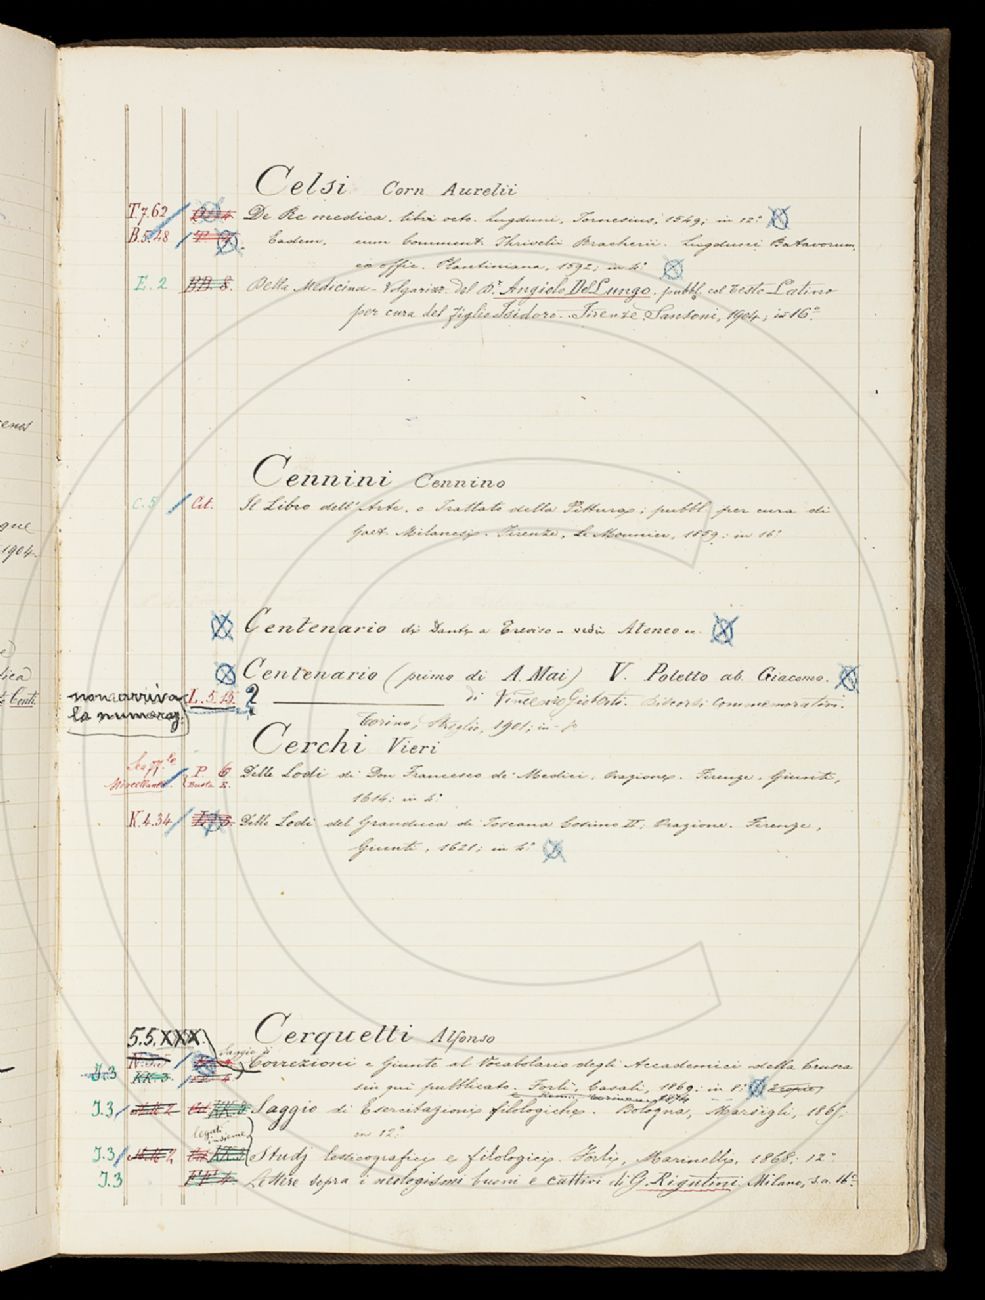 Celsi Corn Aurelii
T.7.62 De Re medica. libri octo. Lugduni, Tornesius, 1549; in 12.°
B.5.28 Eadem, cum Comment. Bracherii. Lugduni Batavorum,
ex offic. Plantiniana, 1592; in 4.°
E.2 BB.8. Della Medicina - Volgarizz. del D.r Angiolo Del Lungo. pubbl. col testo Latino
per cura del figlio Isidoro. Firenze, Sansoni, 1904; in 16.°
Cennini Cennino
C.5 Cit. Il Libro dell'Arte, o Trattato della Pittura; pubbl. per cura di
Gaet. Milanesi. Firenze, Le Monnier, 1859: in 16.°
Centenario di Dante a Treviso - vedi Ateneo
Centenario (primo di A. Mai) V. Poletto ab. Giacomo.
non arriva
la numeraz.
L.5.15 ? di Vincenzo Gioberti. Discorsi Commemorativi.
Torino, 1901; in-8°
Cerchi Vieri
Miscellanee. P 6
Busta
Delle Lodi di Don Francesco de' Medici, Orazione. Firenze, Giunti,
1614: in 4.°
K.4.34 Delle Lodi del Granduca di Toscana Cosimo II, Orazione. Firenze,
Giunti, 1621; in 4.°
Cerquetti Alfonso
5.5.XXX.
Saggio di
J.3 Correzioni e Giunte al Vocabolario degli Accademici della Crusca
sin qui pubblicato. Forlì, Casali, 1869: in 8.° 2 copie
J.3 Saggio di Esercitazioni filologiche. Bologna, Marsigli, 1865,
in 12.°
legati
insieme
J.3 Studj lessicografici e filologici. Forlì, Marinelli, 1868: 12.°
J.3 Lettere sopra i neologismi buoni e cattivi di G. Rigutini. Milano, s.a. 16.°